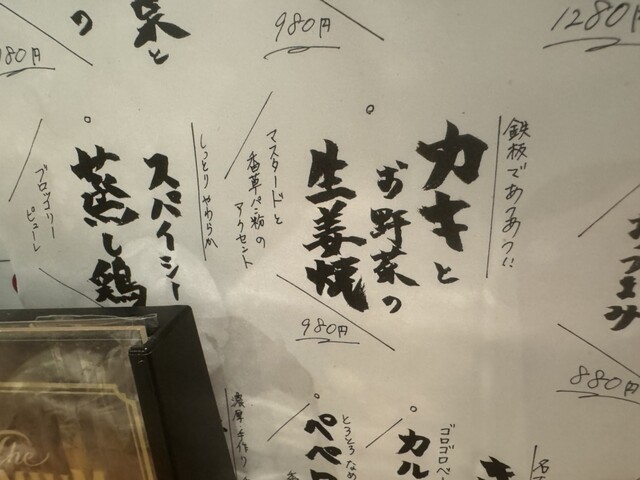 1280円
980円
980円
鉄板であつあつ!!
カキと
お野菜の
生姜焼
980円
880円
マスタードと
香草パン粉の
アクセント
しっとりやわらか
スパイシー
蒸し鶏
ブロッコリー
ピューレ
ゴロゴロベー
カル
とろとろなめ
ペペロ
濃厚手作り
The